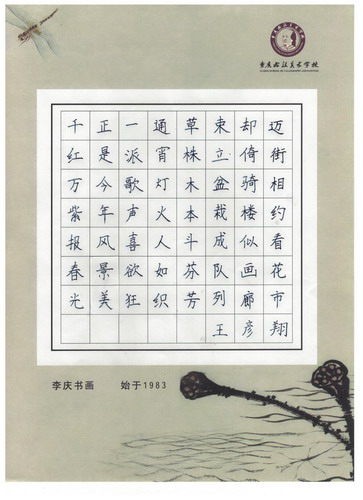 迈街相约看花市
却倚骑楼似画廊
束立盆栽成队列
草株木本斗芬芳
通宵灯火人如织
一派歌声喜欲狂
正是今年风景美
千红万紫报春光
王彦翔
李庆书画 始于1983